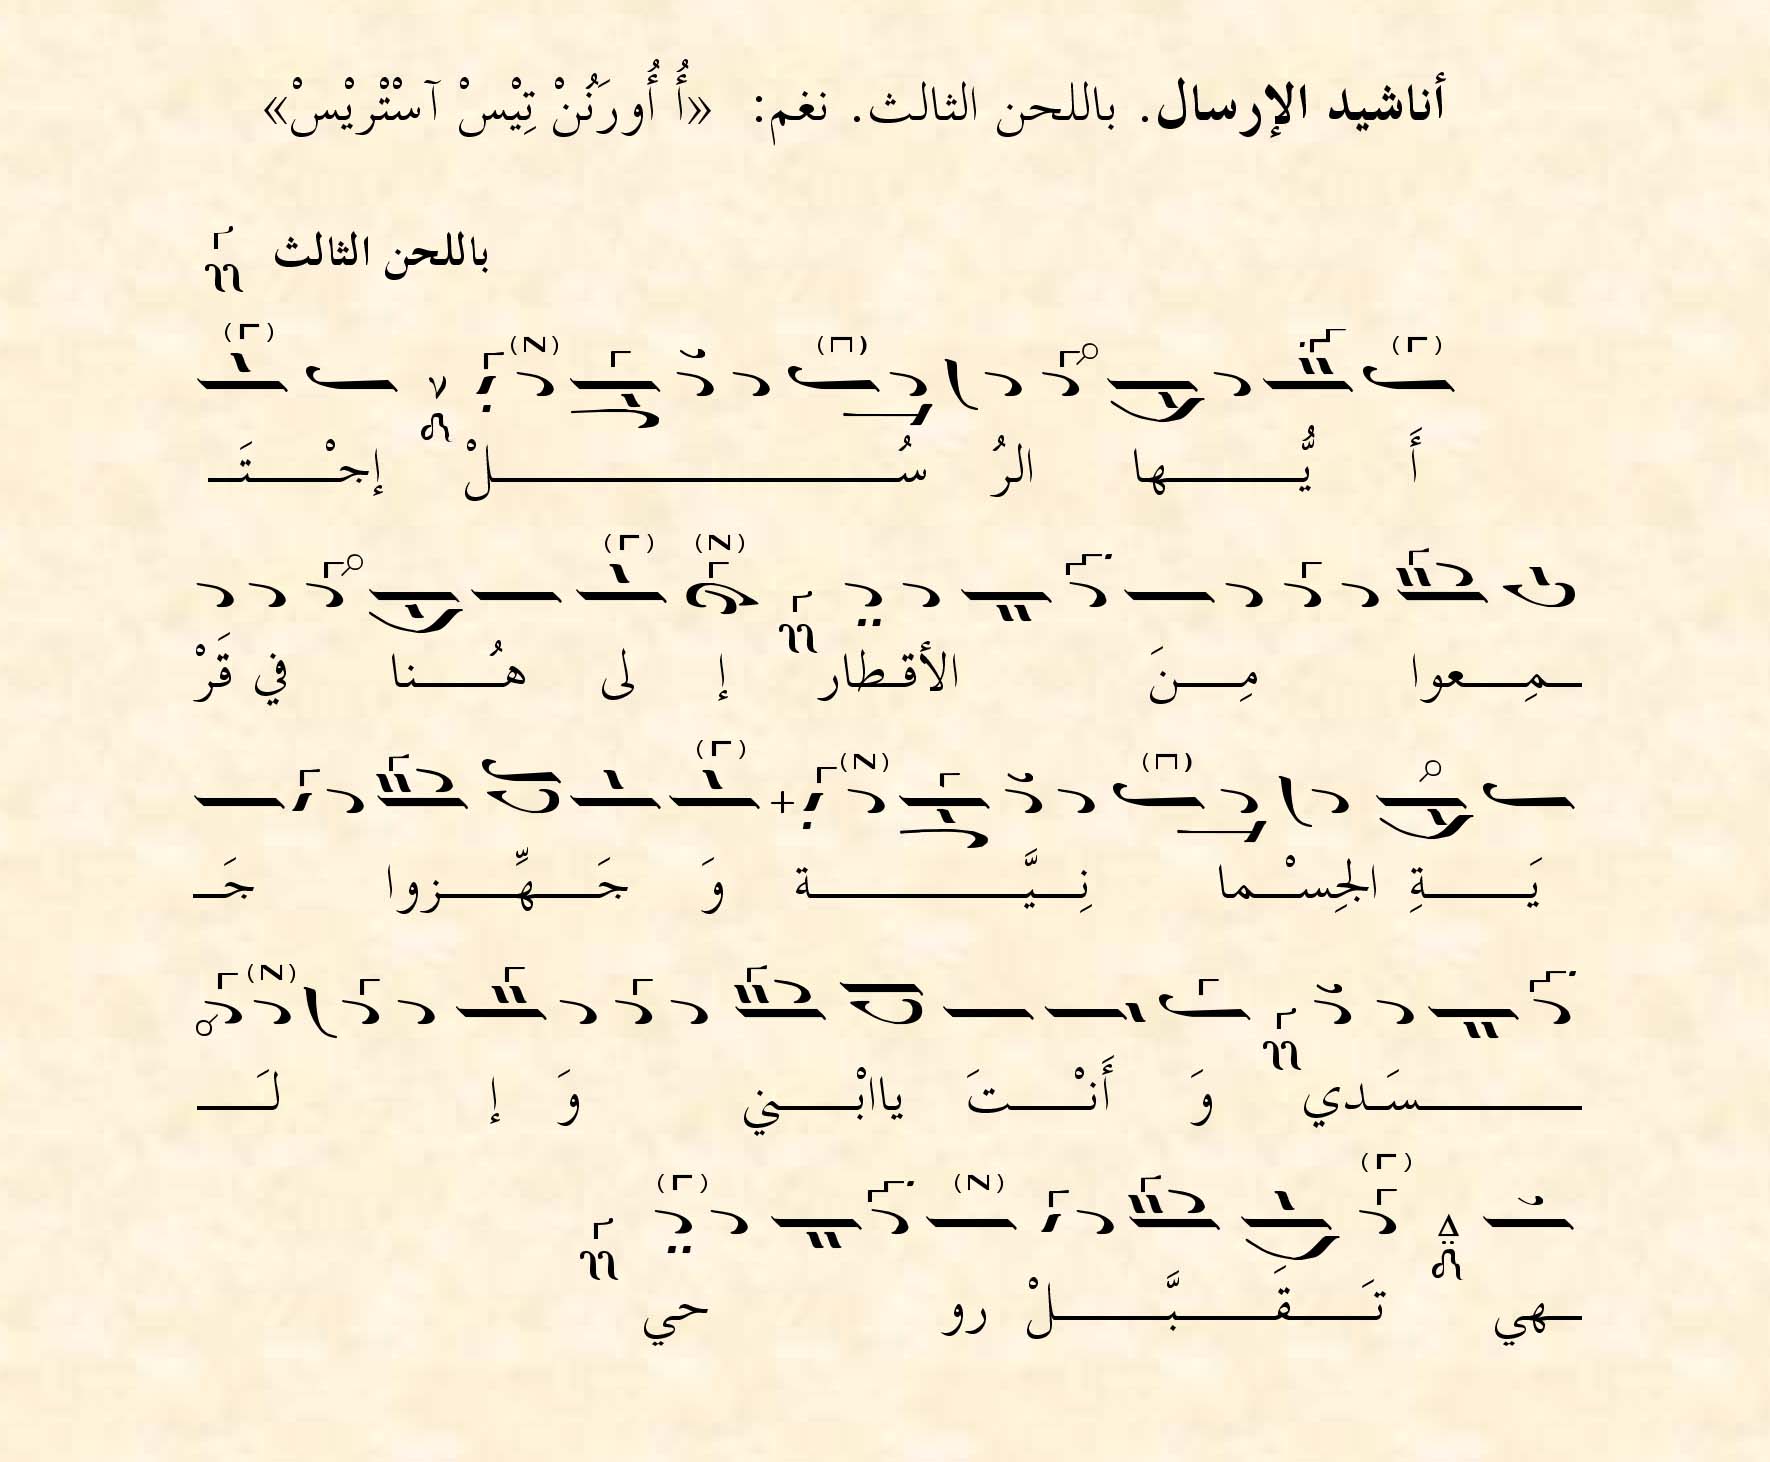 أناشيد الإرسال. باللحن الثالث. نغم: «أُ أُورَنُنْ تِيْسْ آسْتْريْسْ»
باللحن الثالث
أَ يُّـــــها الرُ سُـــــــــــــلْ إجْــــتَـ
ـمِــعوا مِــنَ الأقـطار إ لى هُــــنا في قَرْ
يَــــةِ الجِسْــما نِــيَّـــــــــة وَ جَــــهِّــــزوا جَـ
ـــــسَـدي وَ أَنْــــتَ ياابْــــني وَ إ لَـ
ـهي تَــــقَــــبَّــــلْ رو حي